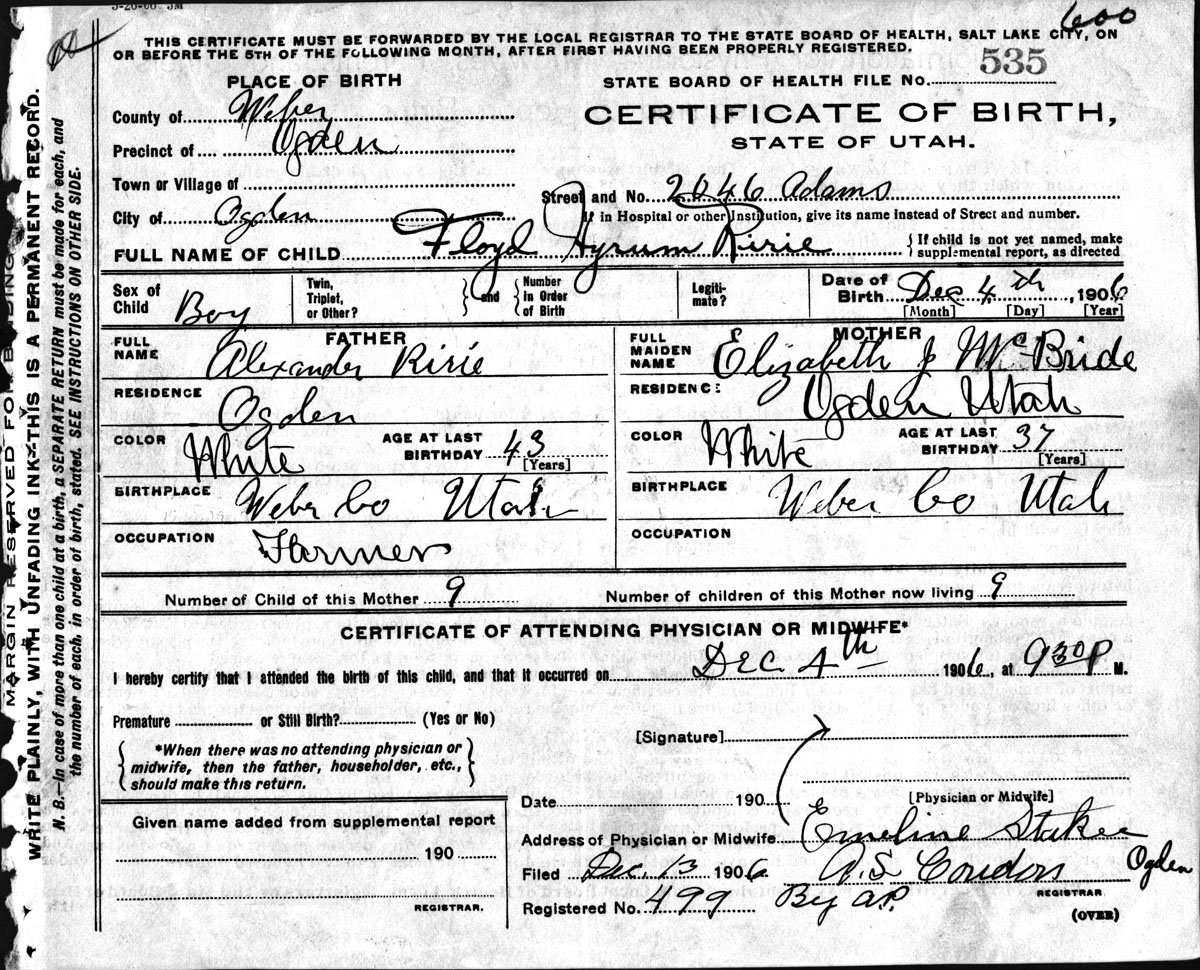 5-26-06 3M
600
THIS CERTIFICATE MUST BE FORWARDED BY THE LOCAL REGISTRAR TO THE STATE BOARD OF HEALTH, SALT LAKE CITY, ON
OR BEFORE THE 5TH OF THE FOLLOWING MONTH, AFTER FIRST HAVING BEEN PROPERLY REGISTERED.
PLACE OF BIRTH
STATE BOARD OF HEALTH FILE No. 535
County of Weber
CERTIFICATE OF BIRTH,
Precinct of Ogden
STATE OF UTAH.
Town or Village of
Street and No. 2046 Adams
City of Ogden
If in Hospital or other Institution, give its name instead of Street and number.
FULL NAME OF CHILD Floyd Hyrum Ririe
{ If child is not yet named, make
supplemental report, as directed
Sex of Child Boy
Twin, Triplet, or Other? } and { Number in Order of Birth
Legitimate?
Date of Birth Dec 4th, 1906
[Month] [Day] [Year]
FATHER
FULL NAME Alexander Ririe
RESIDENCE Ogden
COLOR White AGE AT LAST BIRTHDAY 43
[Years]
BIRTHPLACE Weber Co Utah
OCCUPATION Farmer
MOTHER
FULL MAIDEN NAME Elizabeth J McBride
RESIDENCE Ogden Utah
COLOR White AGE AT LAST BIRTHDAY 37
[Years]
BIRTHPLACE Weber Co Utah
OCCUPATION
Number of Child of this Mother 9 Number of children of this Mother now living 9
CERTIFICATE OF ATTENDING PHYSICIAN OR MIDWIFE*
I hereby certify that I attended the birth of this child, and that it occurred on Dec. 4th 1906, at 930 P M.
Premature or Still Birth? (Yes or No)
[Signature]
{ *When there was no attending physician or
midwife, then the father, householder, etc.,
should make this return. }
Date 190
[Physician or Midwife]
Given name added from supplemental report
190
REGISTRAR.
Address of Physician or Midwife Emeline Staker
Ogden
Filed Dec. 13 1906 A.S. Condon
REGISTRAR
Registered No. 499 By A.P.
(OVER)
MARGIN RESERVED FOR BINDING
WRITE PLAINLY, WITH UNFADING INK—THIS IS A PERMANENT RECORD.
N. B.—In case of more than one child at a birth, a SEPARATE RETURN must be made for each, and
the number of each, in order of birth, stated. SEE INSTRUCTIONS ON OTHER SIDE.